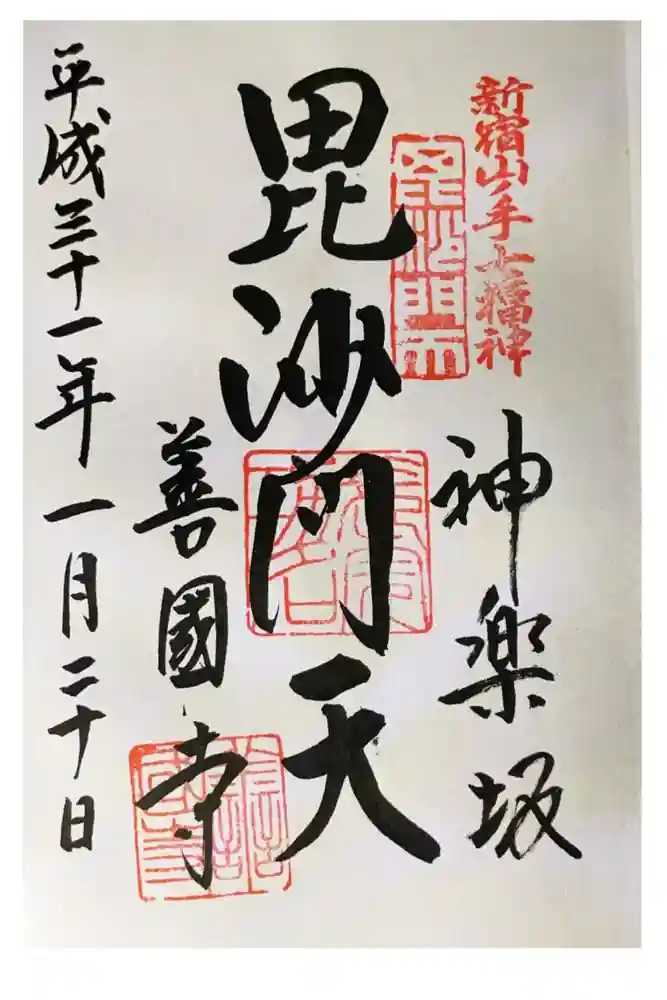 新宿山ノ手七福神
神楽坂
毘沙門天
善國寺
平成三十一年一月二十日